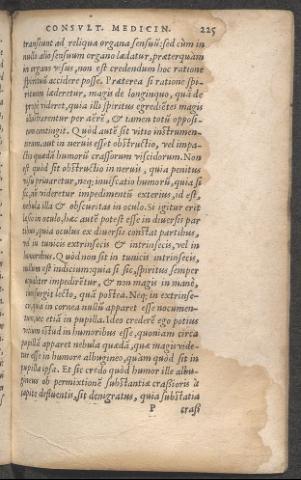 CONSVLT. MEDICIN. 225
transeunt ad reliqua organa sensuũ: sed cùm in
nullo alio sensuum organo lædatur, præterquàm
in organo visus, non est credendum hoc ratione
spirituũ accidere posse. Præterea si ratione spi-
rituum læderetur, magis de longinquo, quá de
propè videret, quia illi spiritus egrediẽtes magis
illustrarentur per aërẽ, & tamen totũ opposi-
tum contingit. Quòd autẽ sit vitio instrumen-
torum, aut in neruis esset obstructio, vel impa-
cto quodã humorũ crassorum viscidorum. Non
est quòd sit obstructio in neruis, quia penitus
visu priuaretur, neq; inuiscatio humorũ, quia si
sic, nõ videretur impedimentũ exterius, id est,
nebula illa & obscuritas in oculo. Si igitur erit
læsio in oculo, hæc autẽ potest esse in diuersis par
tibus, quia oculus ex diuersis constat partibus,
vel in tunicis extrinsecis & intrinsecis, vel in
humoribus. Quòd non sit in tunicis intrinsecis,
nullum est indicium: quia si sic, spiritus semper
æqualiter impediretur, & non magis in manè,
cùm surgit lecto, quá postea. Neq; in extrinse-
cis, quia in cornea nullũ apparet esse nocumen-
tum, nec etiã in pupilla. Ideo crederẽ ego potius
vitium istud in humoribus esse, quoniam circa
pupillã apparet nebula quædã, quæ magis vide-
tur esse in humore albugineo, quàm quòd sit in
pupilla ipsa. Et sic credo quòd humor ille albu-
gineus ob permixtionẽ substantiæ crassioris à
capite defluentis, sit denigratus, quia substãtia
P crassi